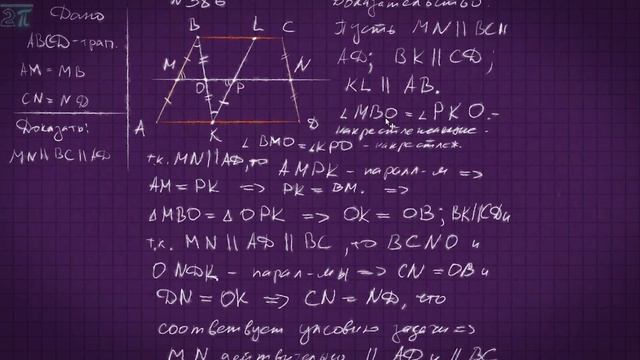 2π
Дано
ABCD-трап.
AM = MB
CN = ND
Доказать:
MN || BC || AD
N 386
B L C
M O P N
A K D
Доказательство:
Пусть MN || BC ||
AD; BK || CD;
KL || AB.
∠MBO = ∠PKO. -
накрест лежащие.
∠BMO = ∠KPO - накрест леж.
т.к. MN || AD, то AMPK - паралл-м =>
AM = PK => PK = BM. =>
ΔMBO = ΔOPK => OK = OB; BK || CD и
т.к. MN || AD || BC, то BCNO и
ONDK - парал-мы => CN = OB и
DN = OK => CN = ND, что
соответствует условию задачи =>
MN действительно || AD и || BC